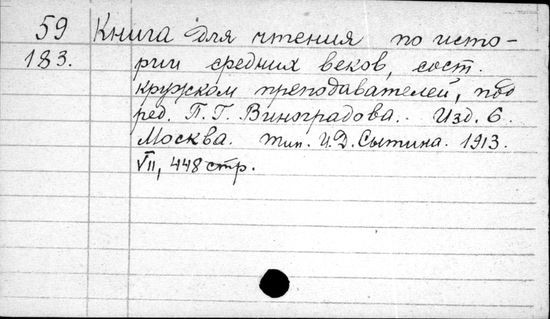 59 Книга для чтения по исто-
183. рии средних веков, сост.
кружком преподавателей, под
ред. П. Г. Виноградова. Изд. 6.
Москва. Тип. И. Д. Сытина. 1913.
VII, 448 стр.